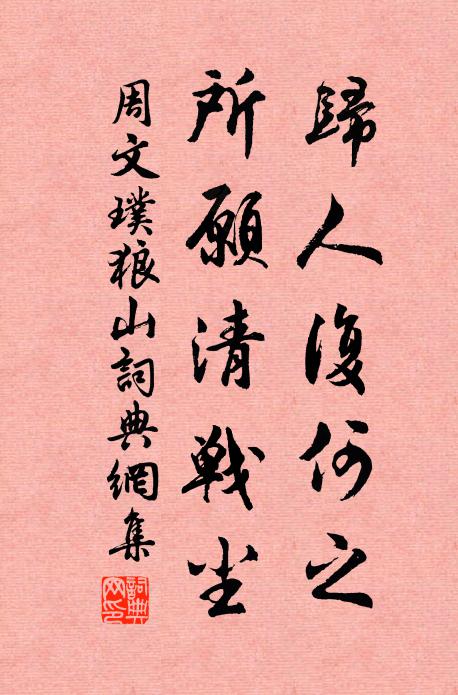 歸人復何之
所願清戰尘
周文璞狼山詞典網集
詞典
网印